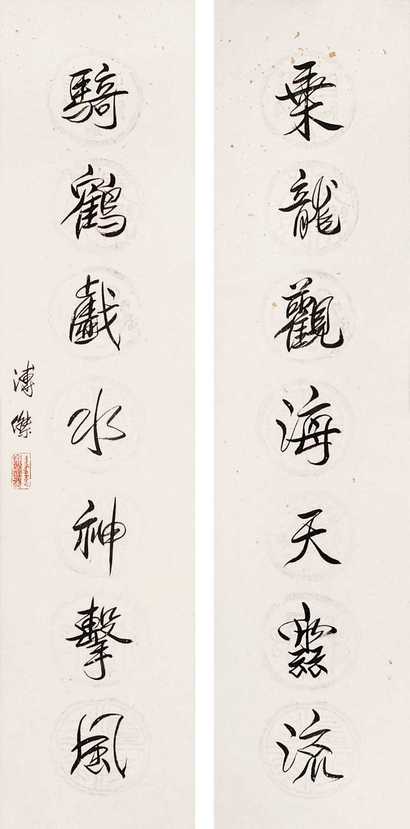 乘龍觀海天流
騎鶴戲水神擊風
溥傑